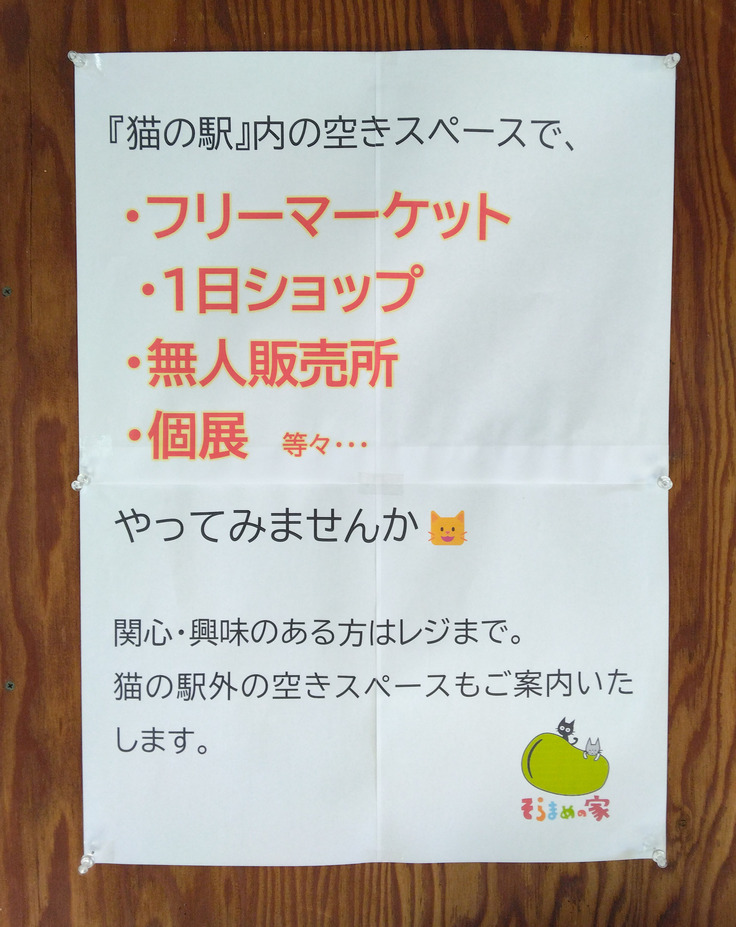 『猫の駅』内の空きスペースで、
・フリーマーケット
・1日ショップ
・無人販売所
・個展 等々・・・
やってみませんか
関心・興味のある方はレジまで。
猫の駅外の空きスペースもご案内いた
します。
そらまめの家